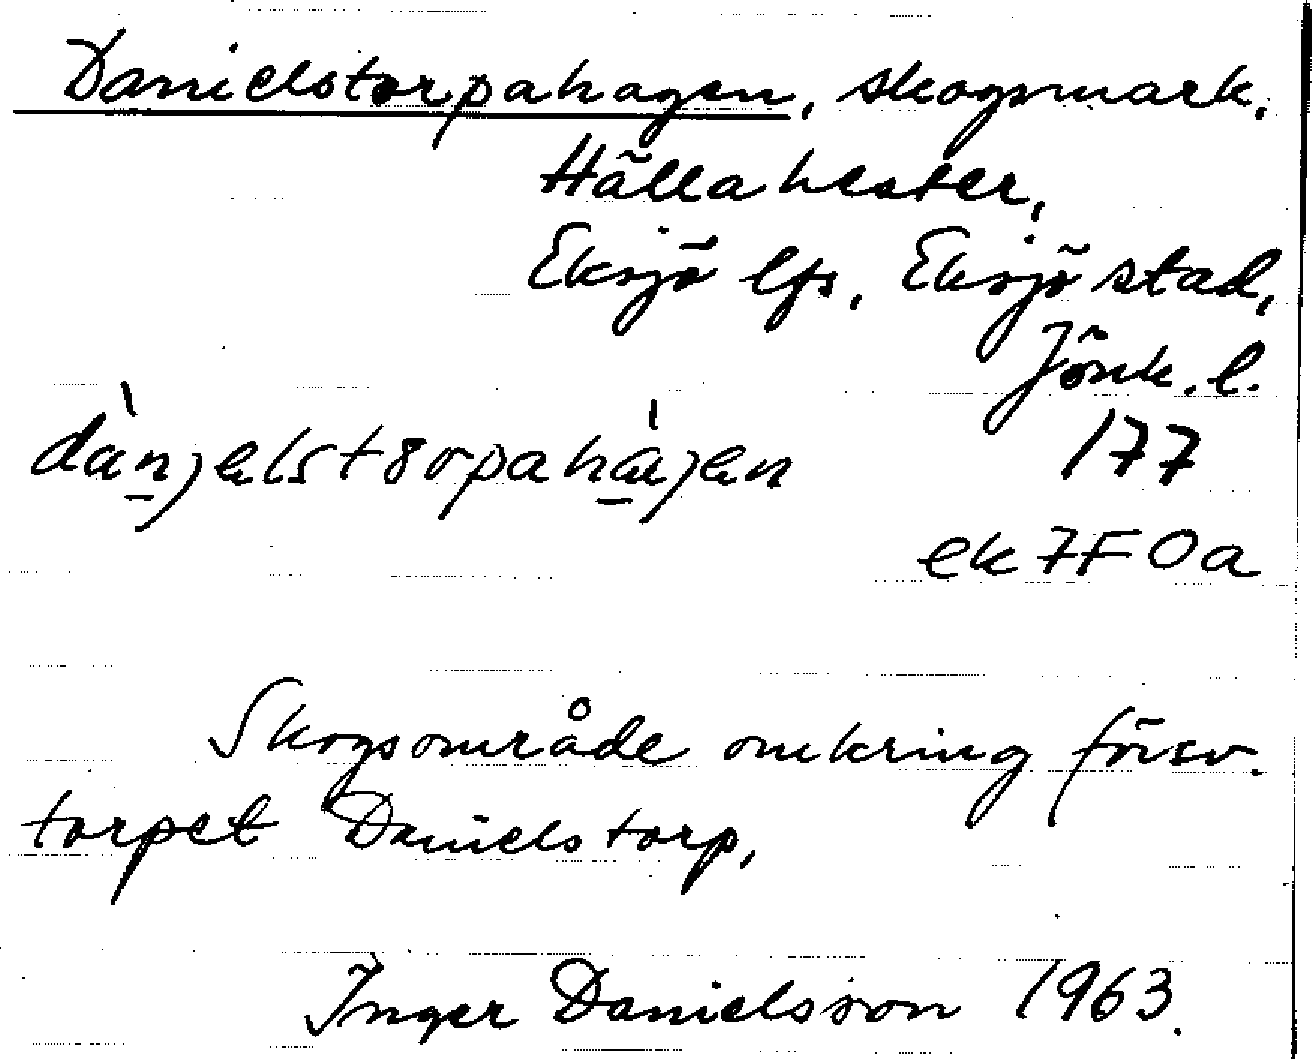 Danielstorpahagen, skogsmark,
Hällahester,
Eksjö lfs, Eksjö stad,
Jönk. l.
dàn̠jelst8rpahà̠jen 177
ek 7F 0a
Skogsområde omkring försv.
torpet Danielstorp,
Inger Danielsson 1963.